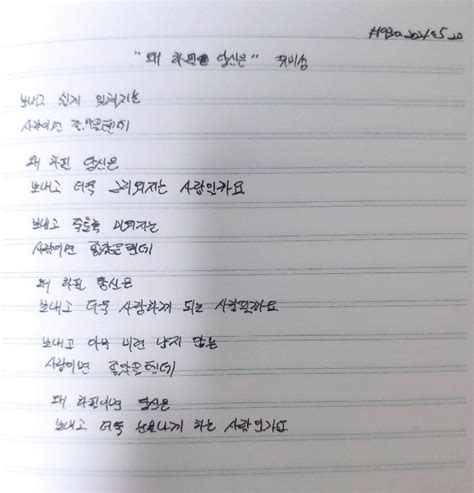 "왜 하필 당신은" 
보내고 쉽게 잊혀지는
사랑이면 좋았을텐데
왜 하필 당신은
보내고 더욱 그리워지는 사랑인가요
보내고 죽도록 미워지는
사랑이면 좋았을텐데
왜 하필 당신은
보내고 더욱 사랑하게 되는 사랑인가요
보내고 아무 미련 남지 않는
사랑이면 좋았을텐데
왜 하필이면 당신은
보내고 더욱 눈물나게 하는 사랑인가요